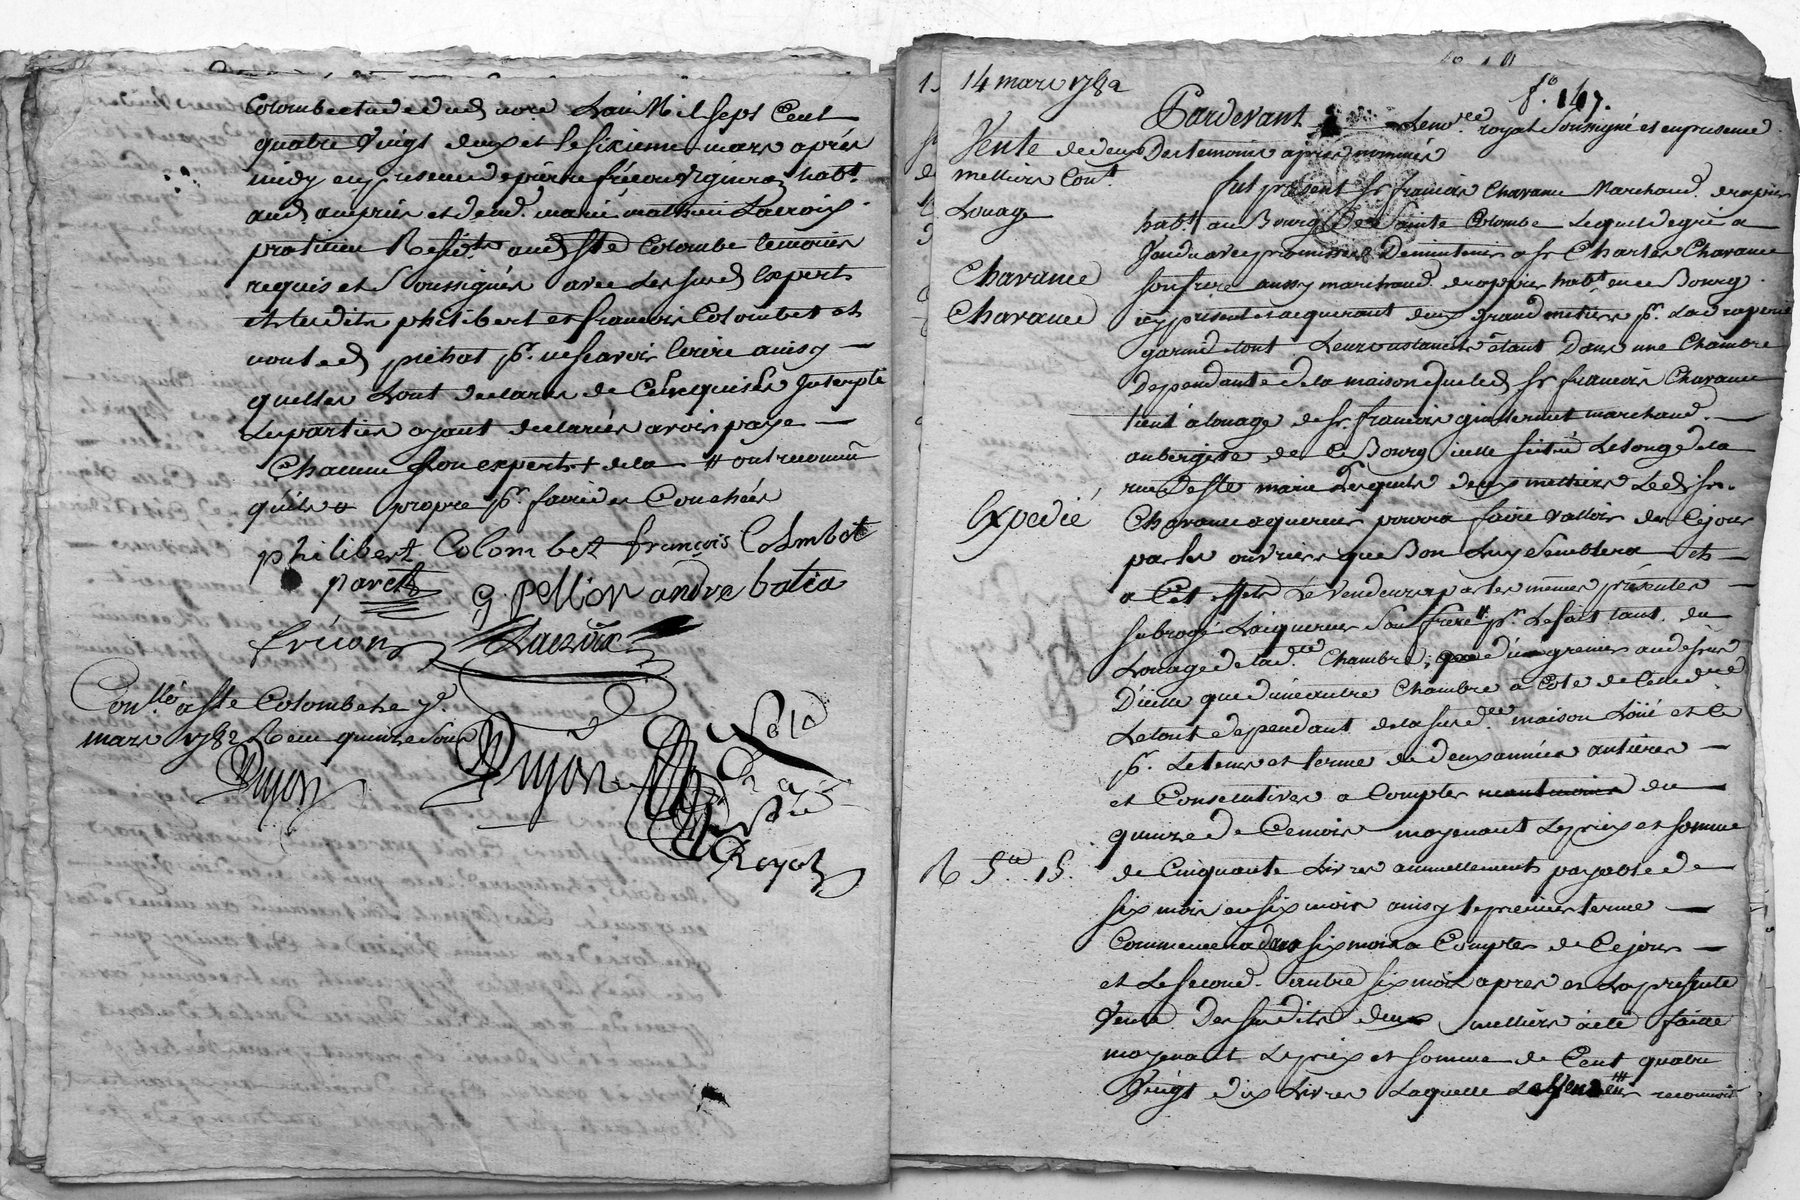 Colombe étude dud. nore. L'an Mil sept Cent
quatre vingt deux et le sixieme mars après
midy en présence de pierre habt.
aud. et de md. marie mathieu Lacroix
praticien Résidt. aud. Ste Colombe temoins
requis et Soussignés avec les susd. Experts
et lesdits philibert et françois Colombet et
non led. pichat pr. ne scavoir Ecrire ainsy
quelles L'ont déclaré de ce Enquises Interpellé
Les parties ayant declarées avoir payé
Chacune son expert + de la # ont reconnu
qu'il propre pr. faire des Couchées
philibert Colombet françois Colombet
paret G pellion andré batia
fricon Lacroix
Conllé a Ste Colombe le 9e.
mars 1782 Reçu quinze sous
Dujon Dujon
Royal
14 mars 1782
fo. 147.
Vente de deux
mettiers Cont.
Louage
Chavanne
Chavanne
Expedié
R 5 15
Pardevant Le nore. royal Soussigné et en presence
Des temoins après nommés
fut présent Sr. françois Chavanne Marchand drapier
habt. au Bourg de Sainte Colombe Lequel de gré a
Vendu avec promesse De maintenir a Sr Charles Chavanne
son frere aussy marchand drapier habt. en ce Bourg
icy présent et acquerant deux grand metiers pr. La draperie
garni de tout Leurs ustancils étant Dans une Chambre
Dependante de la maison que led. Sr françois Chavanne
tient à louage de Sr. françois marchand
aubergiste de ce Bourg icelle située Le longe de la
rue de Ste marie Lesquels deux mettiers Led. Sr.
Chavanne aquereur pourra faire valloir des Ce jour
par les ouvriers que Bon Luy Semblera et
a Cet effet Le Vendeur a par les mêmes présentes
subrogé L'aiquereur Son frere # pr. Le fait tant du
Louage de lad. te Chambre, que d'un grenier au dessus
D'icelle que d'une autre Chambre a Coté de
Le tout dependant de la susd. te maison Loüé et ce
pr. Le tems et terme de deux années antieres
et Consecutives a Compter du
quinze de Ce mois moyenant Le prix et somme
de Cinquante Livres annuellement payable de
six mois en six mois ainsy le premier terme
Commencera dans six mois a Compter de Ce jour
et Le second autre six mois apres et La presente
Vente Des susdits deux mettiers a eté faitte
moyenant Le prix et somme de Cent quatre
Vingt dix Livres Laquelle Le Vendeur reconnoit